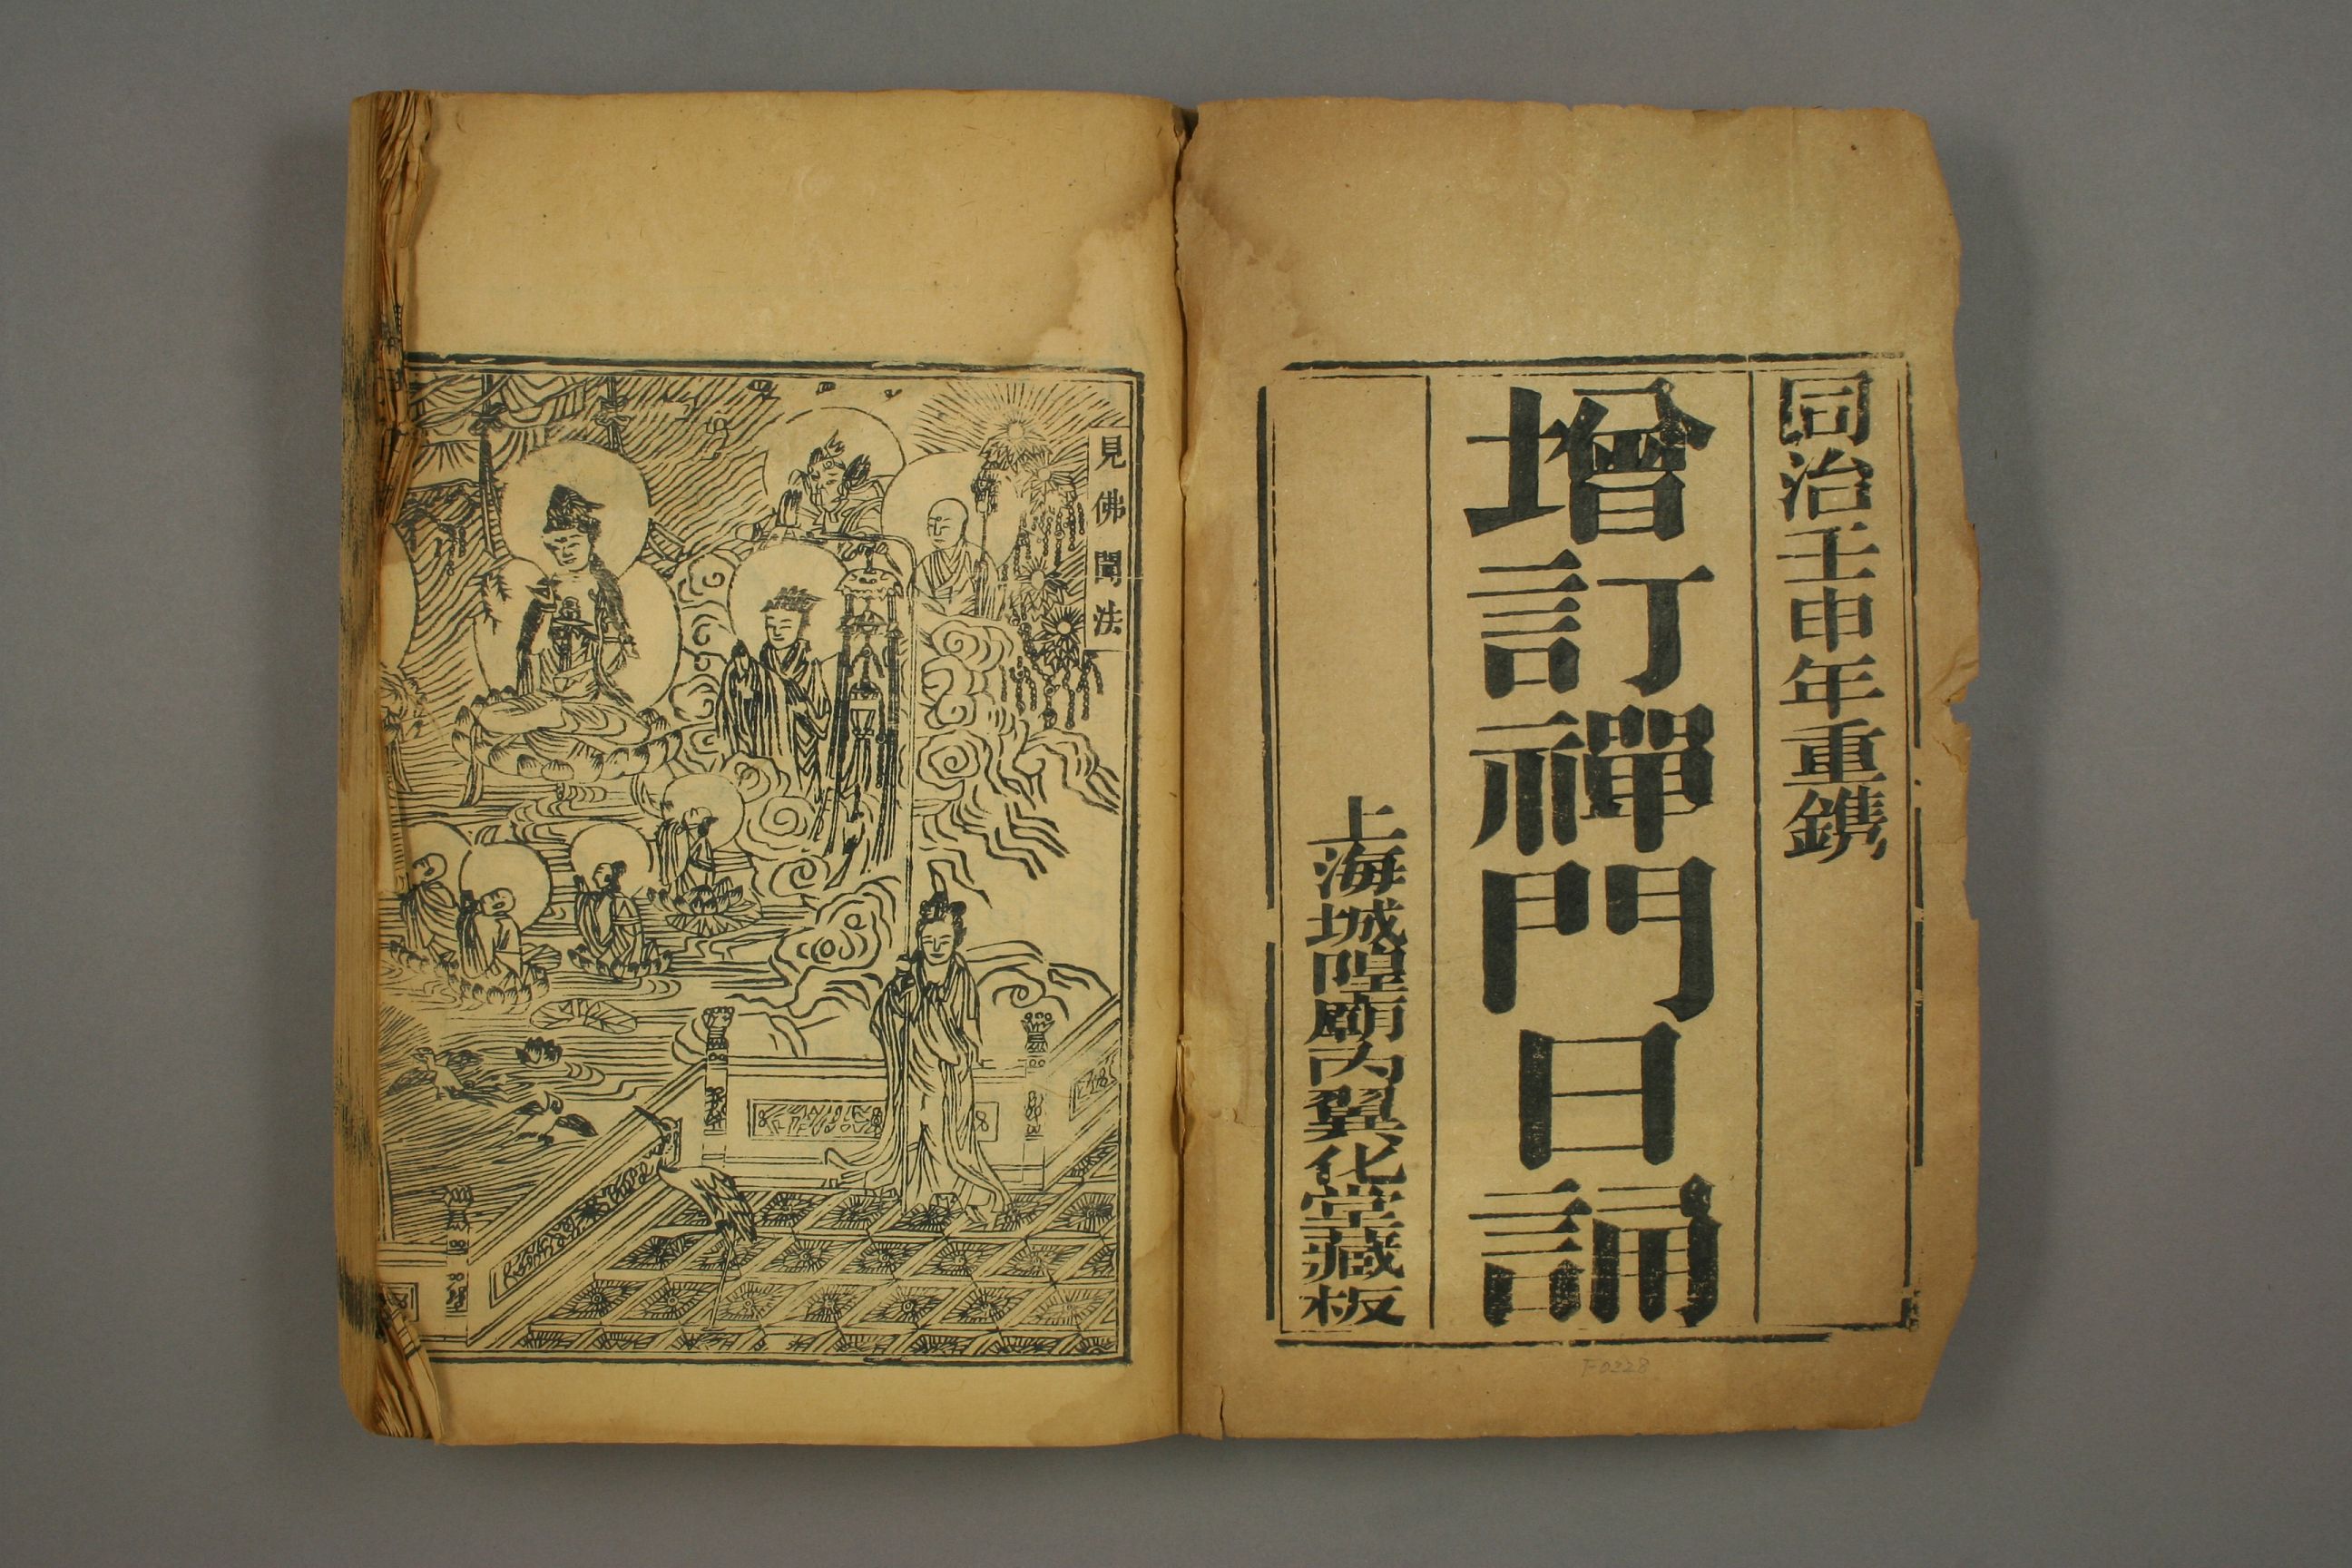 同治壬申年重鐫
增訂禪門日誦
上海城隍廟內翼化堂藏板
見佛聞法
F0228